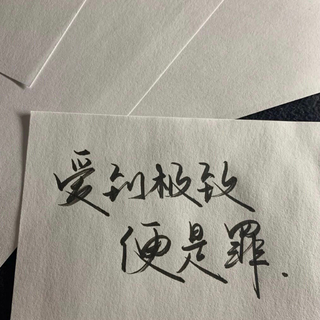 爱到极致
便是罪.